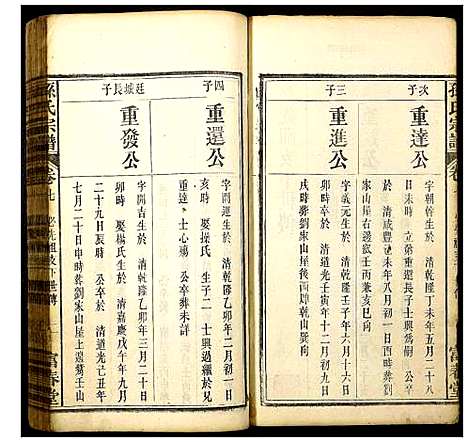 次子
重達公
字朝幹生於 清乾隆丁未年五月二十八
日未時 立弟重還長子士興爲嗣 公卒
於 清咸豐己未年八月初四日
家山屋右邊巖壬丙兼亥巳向
三子
重進公
字義元生於 清乾隆壬子年六月十六日
時 公卒於 清道光壬寅年十二月初九日
戌時葬劉家山屋後西邊乾山巽向
四子
重還公
字開運生於 清乾隆乙卯年二月初一日
亥時 娶操氏 生子二 士興過繼於兄
重達 士心殤 公卒葬未詳
廷城長子
重發公
字開吉生於 清乾隆乙卯年三月二十日
卯時 娶楊氏生於 清嘉慶戊午年九月
二十九日辰時 公卒於 清道光己丑年
七月二十日申時葬劉家山屋上邊蔭壬山
孫氏宗譜
卷七
富春堂